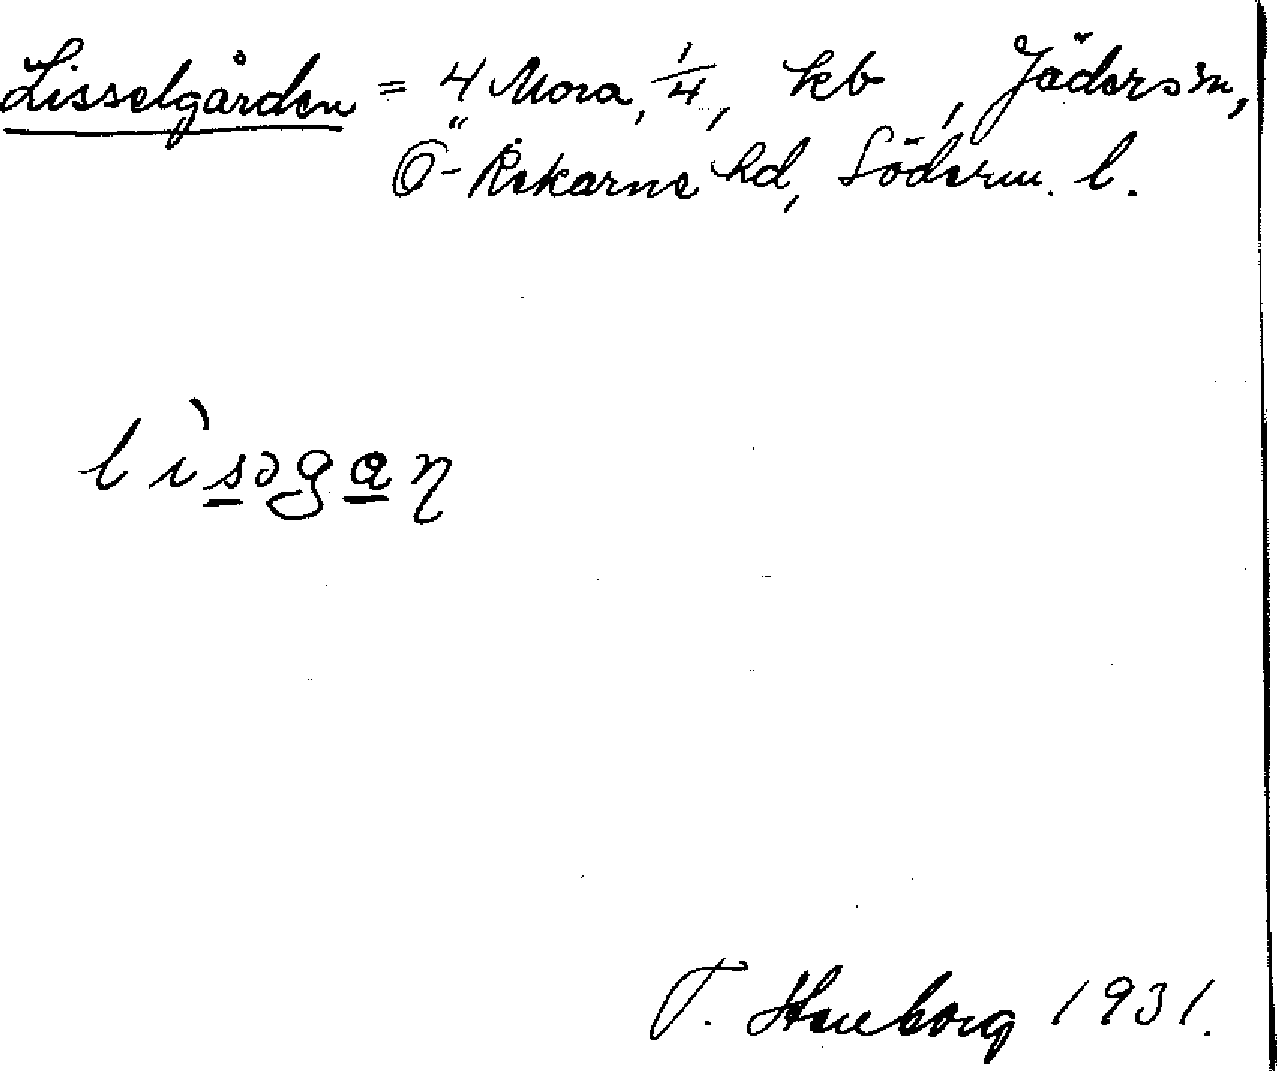 Lisselgården = 4 Mora, 1/4, kb, Jäders sn,
Ö-Rekarne hd, Söderm. l.
lìsəgaɳ
T. Stenborg 1931.